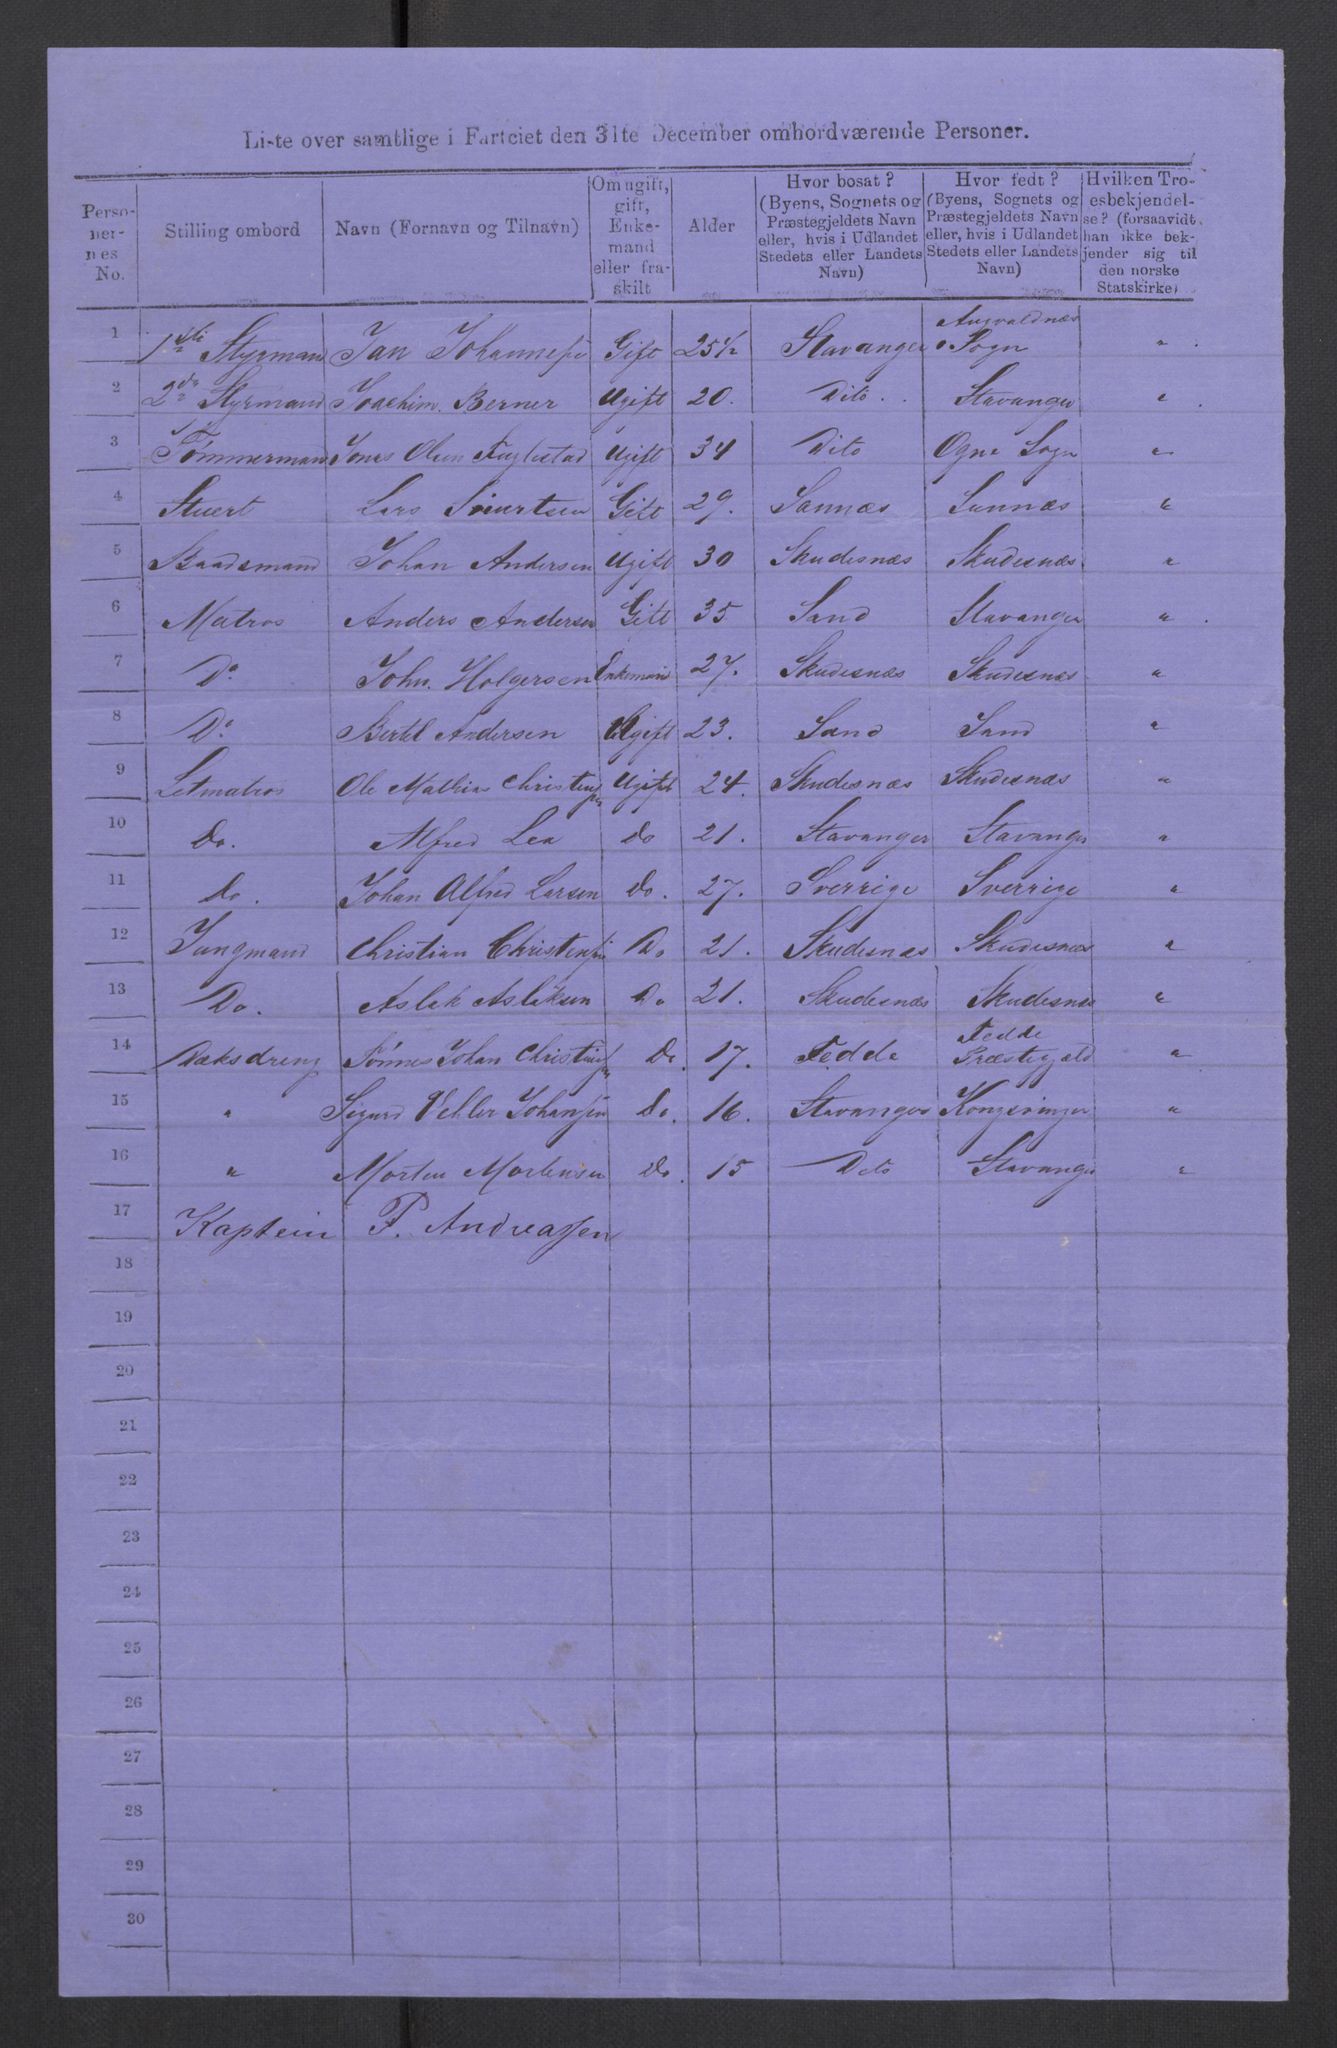 Liste over samtlige i Fartøiet den 31te December ombordværende Personer.
Personernes No. | Stilling ombord | Navn (Fornavn og Tilnavn) | Om ugift, gift, Enkemand eller fraskilt | Alder | Hvor bosat? (Byens, Sognets og Præstegjeldets Navn eller, hvis i Udlandet Stedets eller Landets Navn) | Hvor født? (Byens, Sognets og Præstegjeldets Navn eller, hvis i Udlandet Stedets eller Landets Navn) | Hvilken Troesbekjendelse? (forsaavidt han ikke bekjender sig til den norske Statskirke)
1 | 1ste Styrmand | Jan Johannesen | Gift | 25½ | Stavanger | Augvaldnæs Sogn | "
2 | 2den Styrmand | Joachim Berner | Ugift | 20. | Dito. | Stavanger | "
3 | Tømmermand | Jonas Olsen Fuglestad | Ugift | 34 | Dito | Ogne Sogn | "
4 | Stuert | Lars Sivertsen | Gift | 29. | Sannæs | Sannæs | "
5 | Baadsmand | Johan Andersen | Ugift | 30 | Skudesnæs | Skudesnæs | "
6 | Matros | Anders Andersen | Gift | 35 | Sand | Stavanger | "
7 | Do | John. Holgersen | Enkemand | 27. | Skudesnæs | Skudesnæs | "
8 | Do | Bertel Andersen | Ugift | 23. | Sand | Sand | "
9 | Letmatros | Ole Mathias Christensen | Ugift | 24. | Skudesnæs | Skudesnæs | "
10 | Do. | Alfred Lea | Do | 21. | Stavanger | Stavanger | "
11 | Do. | Johan Alfred Larsen | Do. | 27. | Sverrige | Sverrige | "
12 | Jungmand | Christian Christensen | Do | 21. | Skudesnæs | Skudesnæs | "
13 | Do. | Aslak Aslaksen | Do | 21. | Skudesnæs | Skudesnæs | "
14 | Dæksdreng | Tønnes Johan Christensen | Do. | 17. | Fedde | Fedde Præstegjæld | "
15 | " | Sigurd Johansen | Do. | 16. | Stavanger | Kongsvinger | "
16 | " | Morten Mortensen | Do. | 15 | Dito | Stavanger | "
17 | Kaptein | P. Andreassen
18
19
20
21
22
23
24
25
26
27
28
29
30